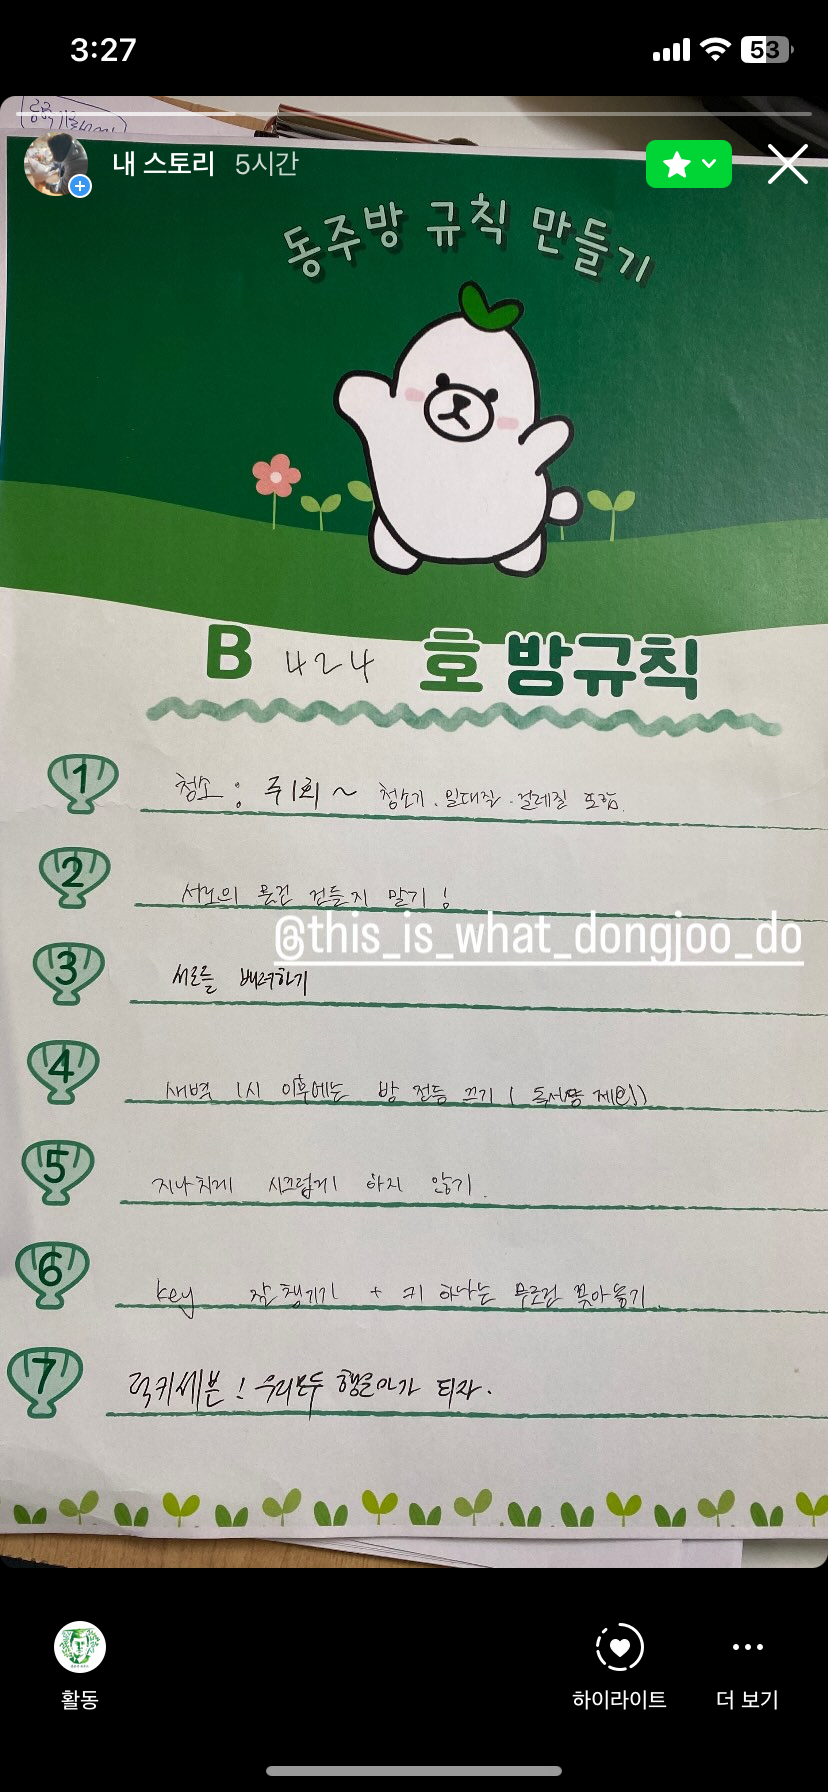 3:27
53
내 스토리 5시간
동주방 규칙 만들기
B 424 호 방규칙
1 청소 : 주 1회 ~ 청소기 . 밀대질 . 걸레질 포함.
2 서로의 물건 건들지 말기 !
@this_is_what_dongjoo_do
3 서로를 배려하기
4 새벽 1시 이후에는 방 전등 끄기 ( 독서등 제외)
5 지나치게 시끄럽게 하지 않기.
6 key 잘 챙기기 + 키 하나는 무조건 꽂아놓기.
7 럭키세븐 ! 우리모두 행운아가 되자.
활동
하이라이트
더 보기